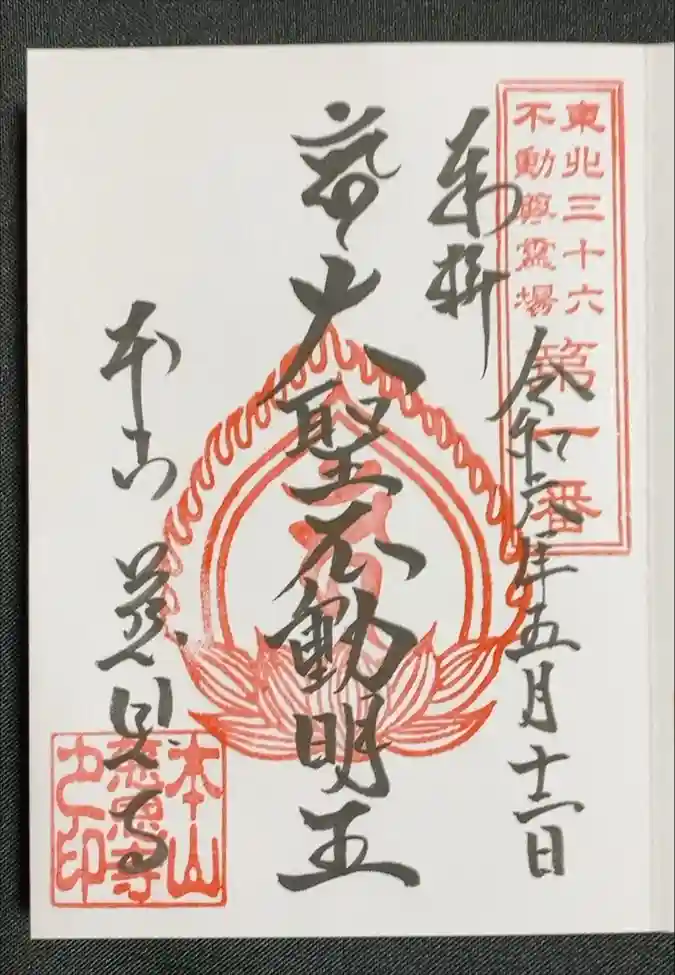 東北三十六
不動尊霊場
第一番
奉拝
令和六年五月十二日
大聖不動明王
本山 慈恩寺
本山
慈恩寺
之印